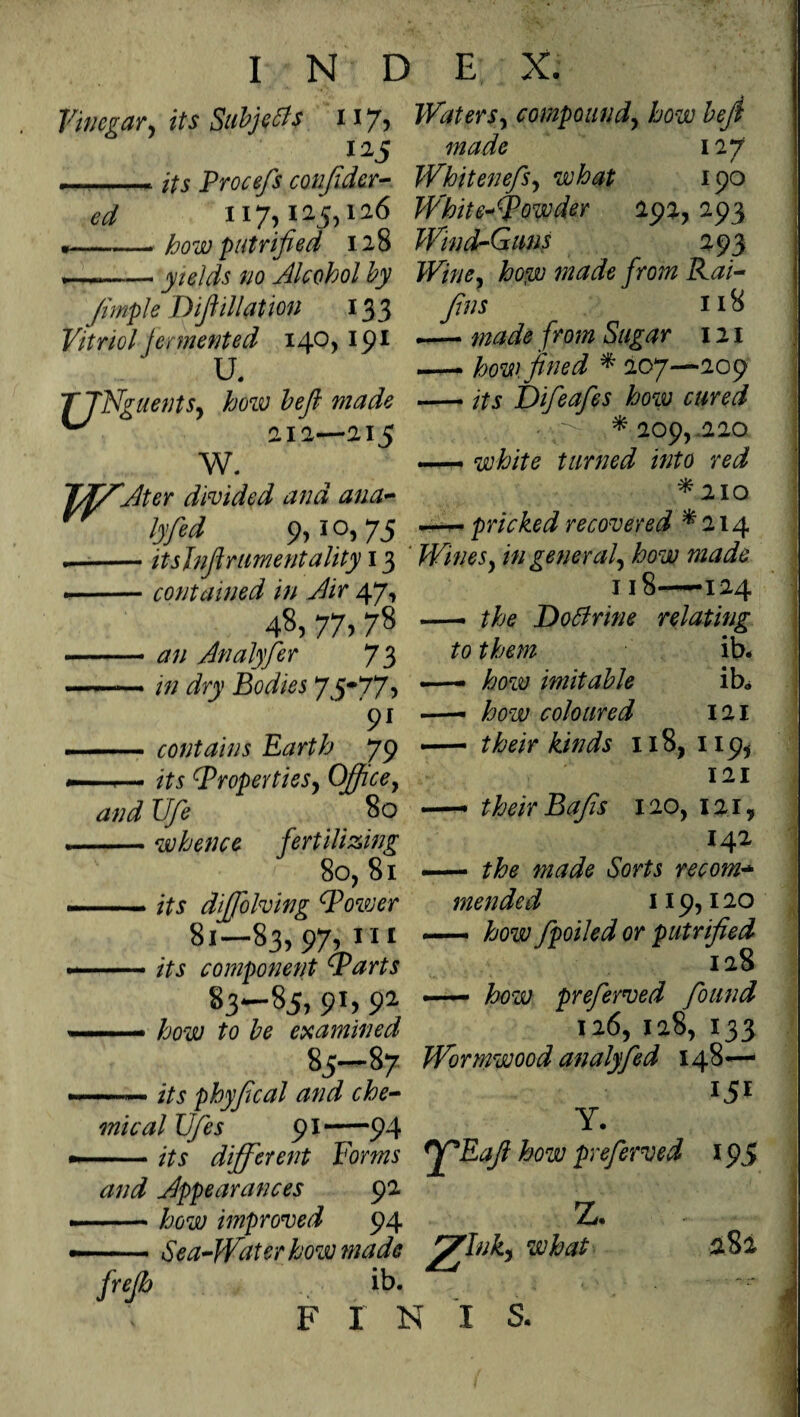 INDEX.
Vinegar, its Subjects 117,
125
——— its Process consider-
ed 117, 125, 126
——— how putrified 128
——— yields no Alcohol by
simple Distillation 133
Vitriol fermented 140, 191
U.
UNguents, how best made
212—215
W.
WAter divided and ana-
lysed 9, 10, 75
——— its Instrumentality 13
——— contained in Air 47,
48, 77, 78
——— an Analyser 73
——— in dry Bodies 75-77,
91
——— contains Earth 79
——— its Properties, Office,
and Use 80
——— whence fertilizing
80, 81
——— its dissolving Power
81—83, 97, 111
——— its component Parts
83—85, 91, 92
——— how to be examined
85—87
——— its physical and che-
mical Uses 91——94
——— its different Forms
and Appearances 92
——— how improved 94
——— Sea-Water how made
fresh ib.
Waters, compound, how best
made 127
Whiteness, what 190
White-Powder 292, 293
Wind-Guns 293
Wine, how made from Rai-
sins 118
—— made from Sugar 121
—— how fined * 207—209
—— its Diseases how cured
* 209, 220
—— white turned into red
* 210
—— pricked recovered * 214
Wines, in general, how made
118——124
—— the Doctrine relating
to them ib.
—— how imitable ib.
—— how coloured 121
—— their kinds 118, 119,
121
—— their Basis 120, 121,
142
—— the made Sorts recom-
mended 119, 120
—— how spoiled or putrified
128
—— how preserved found
126, 128, 133
Wormwood analysed 148—
151
Y.
YEast how preserved 195
Z.
ZInk, what 282
FINIS.